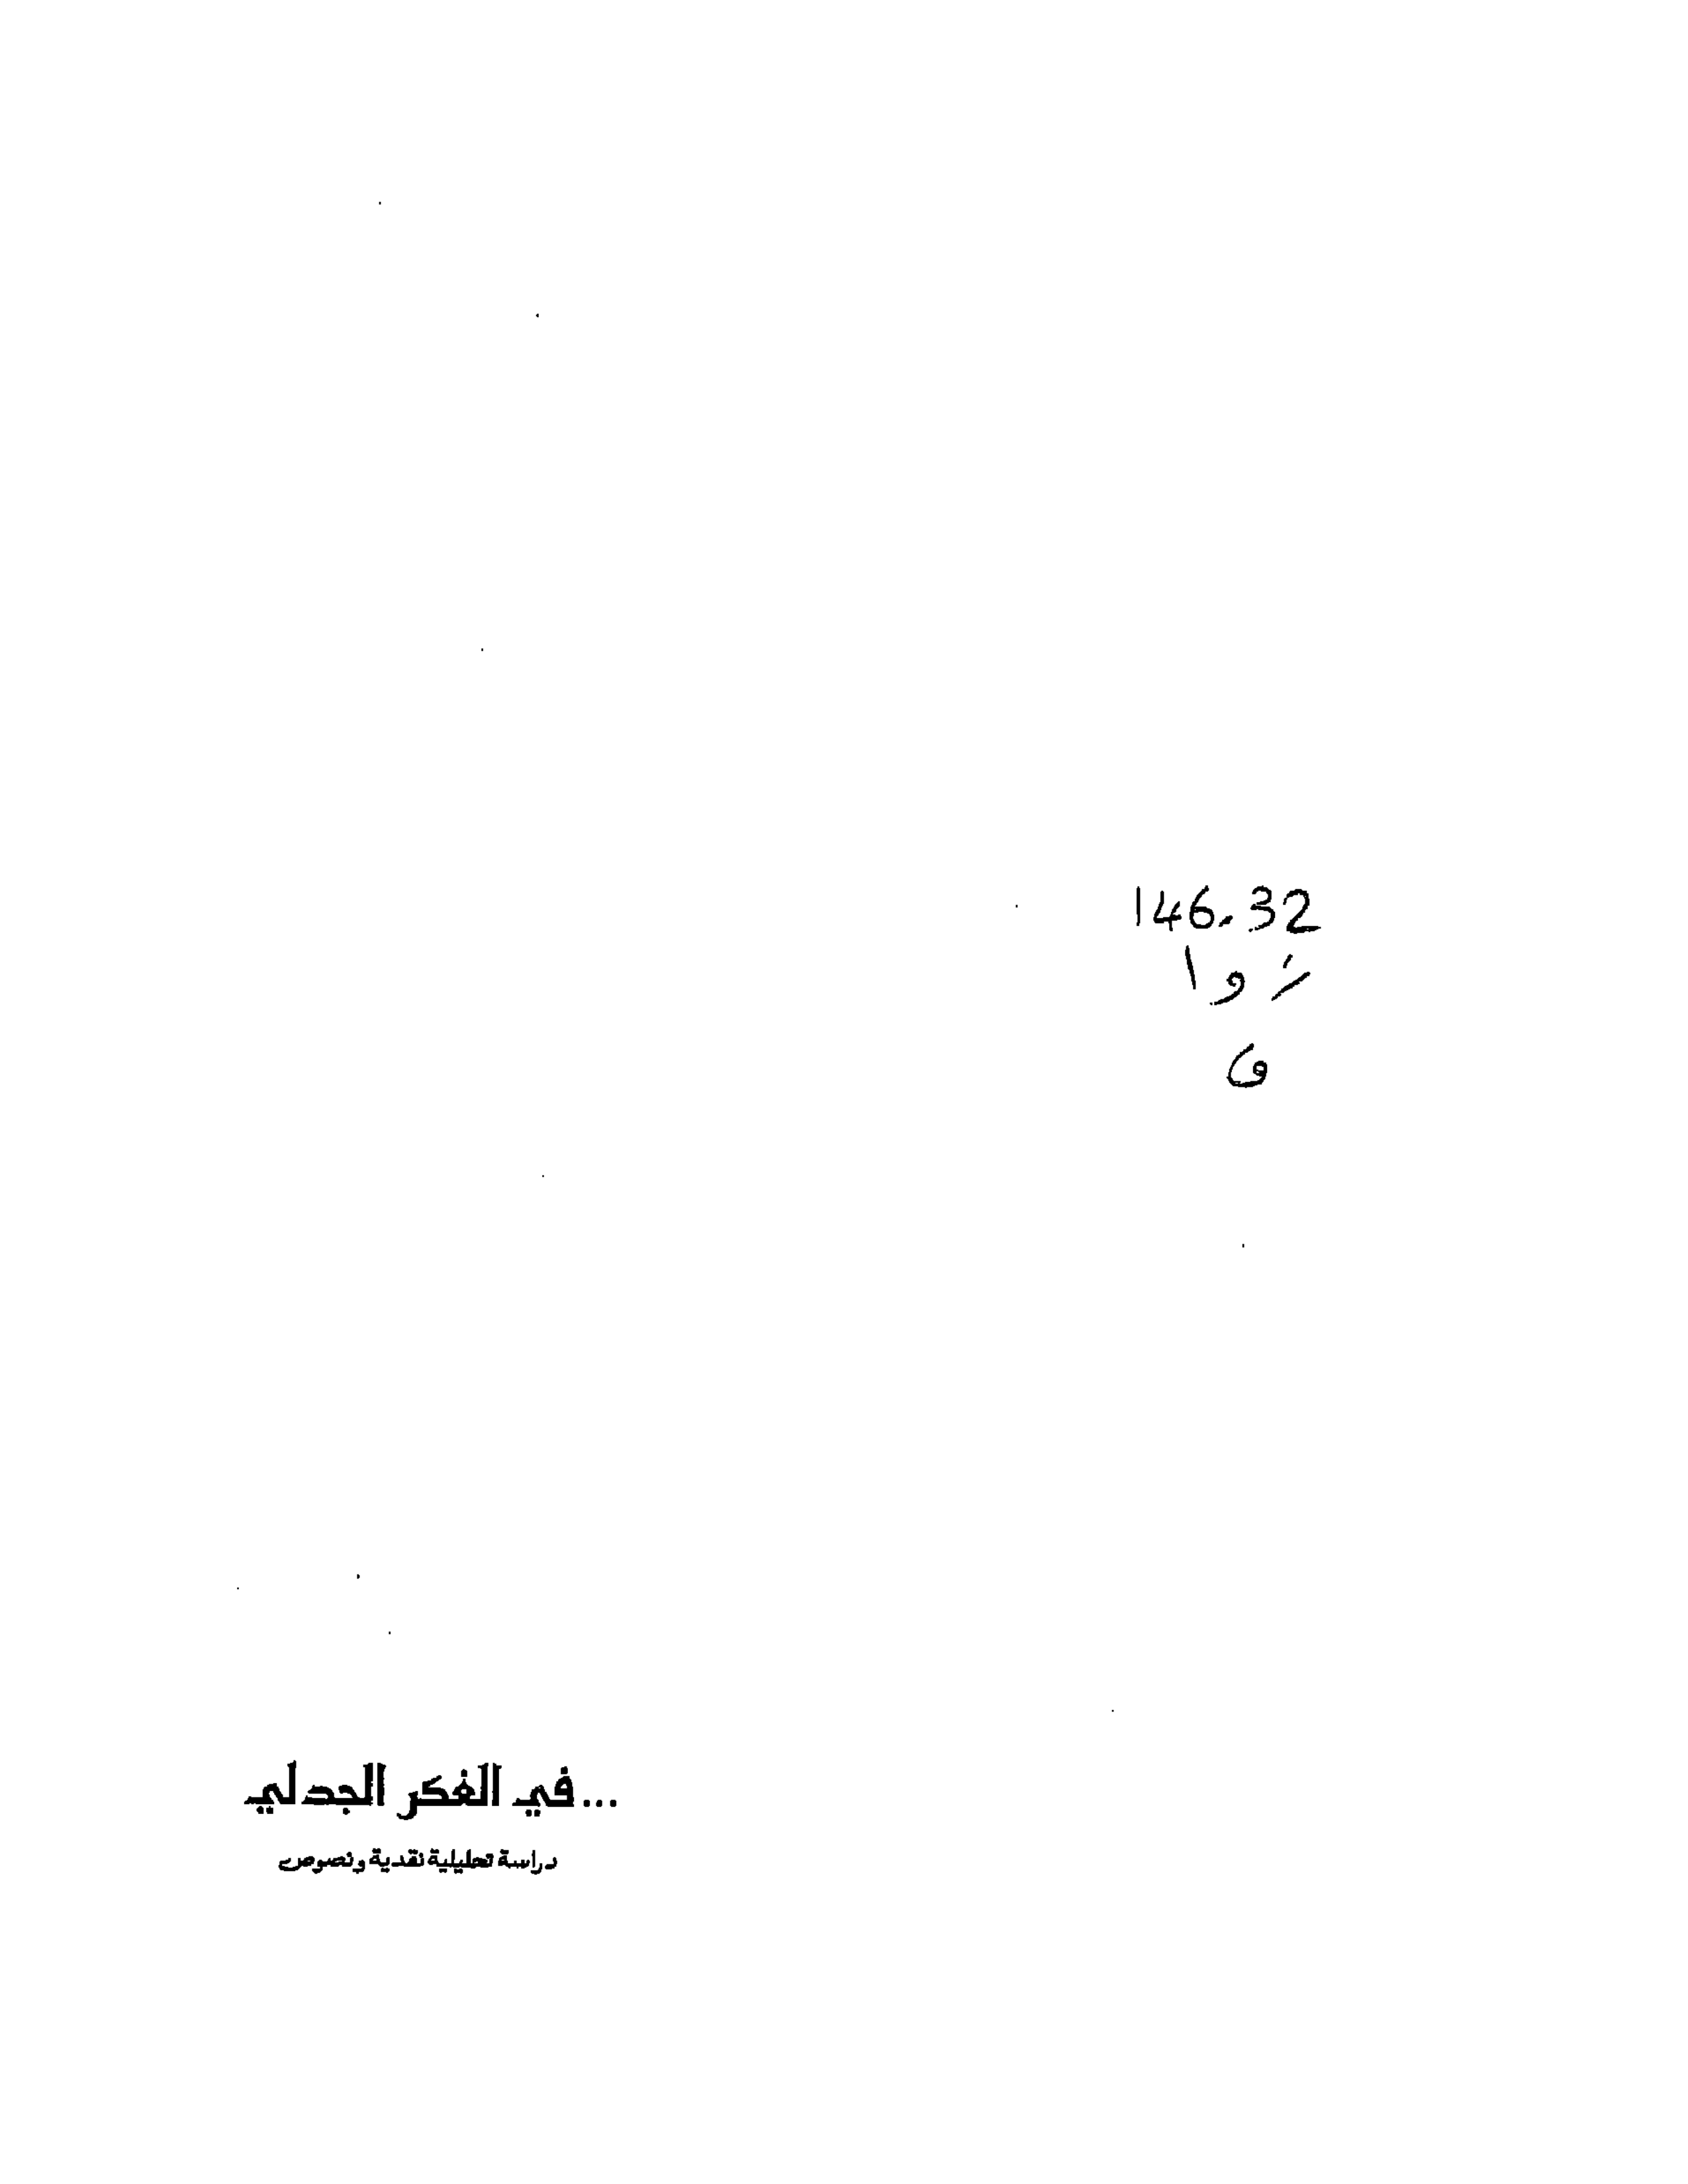 146.32
زوا
ف
...في الفكر الجدلي
دراسة تحليلية نقدية ونصوص